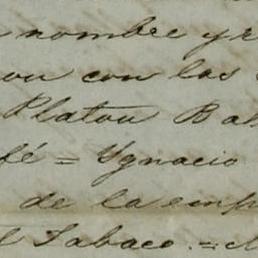 nombre y r
con las
Platon Bal
fé = Ygnacio
de la emp
l Tabaco. =